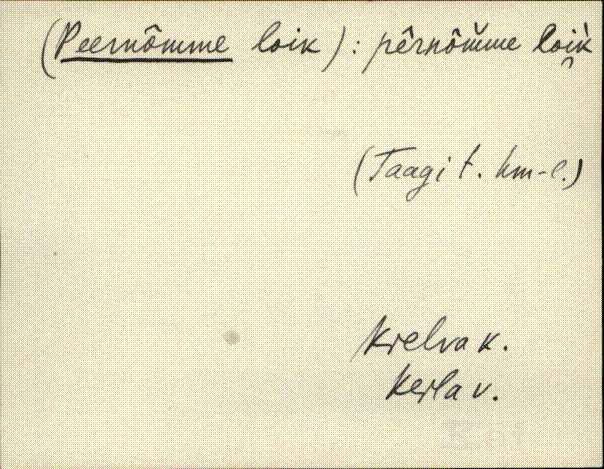 (Peernõmme loik) : pêrnõm̆me loi̯k̀
(Taagi t. hm-l.)
Kielva k.
Keila v.